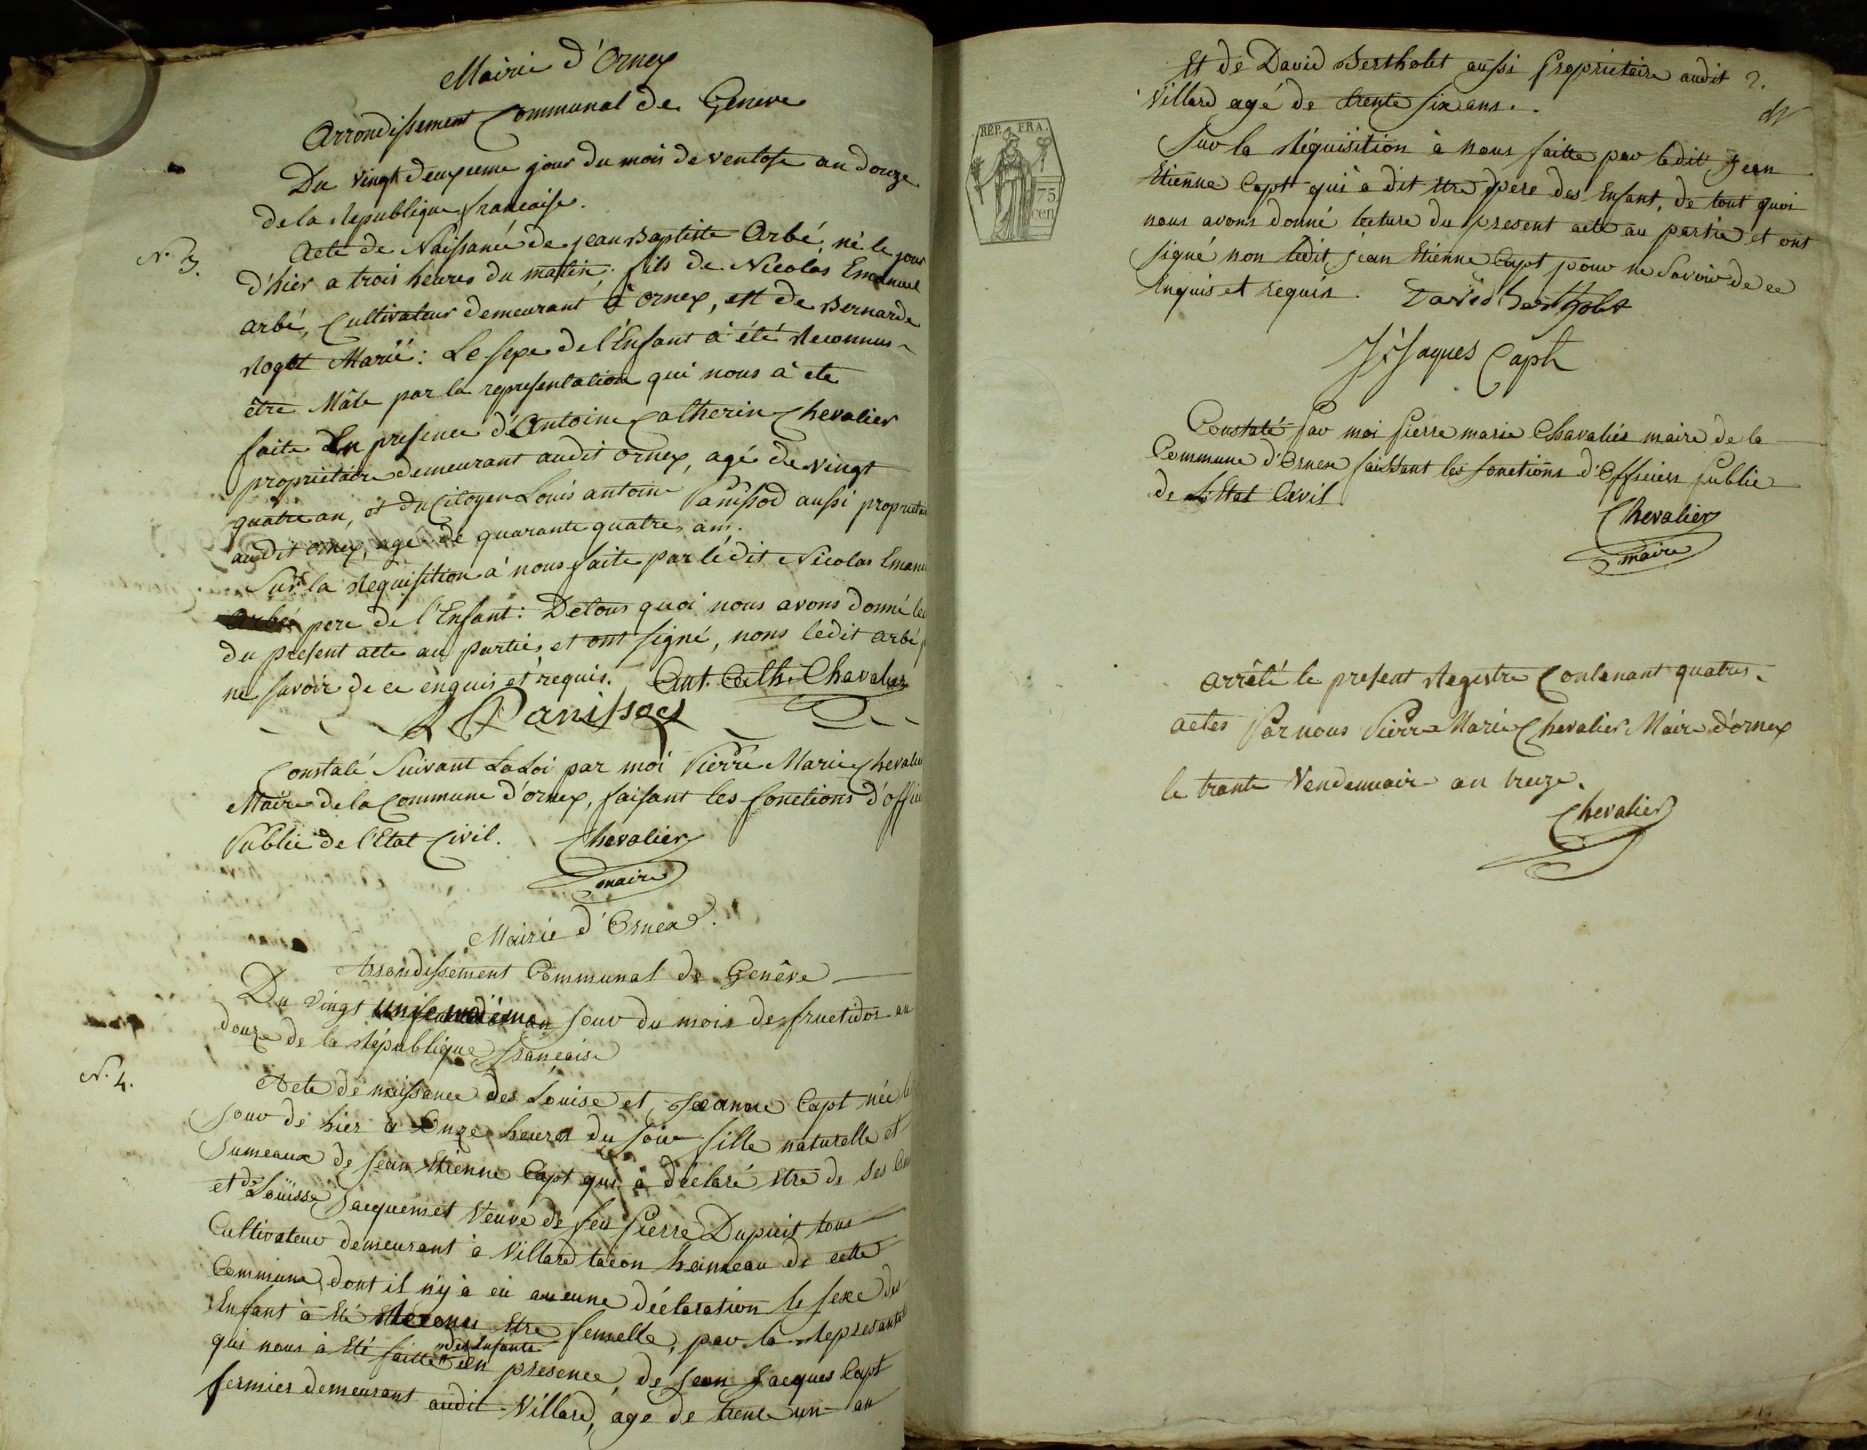 Mairie d'Ornex
Arrondissement Communal de Geneve
Du vingt deuxieme jour du mois de ventose an douze
de la Republique francaise.
N.° 3.
Acte de Naissance de jean Baptiste Arbé, né le jour
d'hier a trois heures du matin, fils de Nicolas Emanuel
arbé, Cultivateur demeurant à ornex, et de Bernarde
Rogot Marié: Le sexe de l'Enfant à été Reconnus
être Mâle par la representation qui nous à ete
faite En presence d'Antoine Catherin Chevalier
propriétaire demeurant audit ornex, agé de vingt
quatre an, et du Citoyen Louis antoine Panissod aussi propriet
audit ornex, agé de quarante quatre an.
Sur la Requisition à nous faite par lédit Nicolas Eman
Arbé pere de l'Enfant: De tous quoi nous avons donné lec
du present acte au partie, et ont signé, nons ledit arbé p
ne savoir de ce enquis et requis. Ant. Cath. Chevalier
Panissod
Constaté Suivant La Loi par moi Pierre Marie Chevalie
Maire de la Commune d'ornex, faisant les fonctions d'offici
Public de l'Etat Civil. Chevalier
maire
Mairie d'Ornex.
Arrondissement Communal de Genêve
Du vingt unieme jour du mois de fructidor an
douze de la République francaise
N.° 4.
Acte de naissance des Louise et Jeanne Capt née le
jour de hier a Onze heures du soir fille naturelle et
Jumeaux de jean Etienne Capt qui à déclaré Etre de ses
et de Louisse Jacquemet Veuve de feu Pierre Dupuit tous
Cultivateur demeurant à Villard tacon hameau de cette
Commune, dont il n'y à eü aucune déclaration le sexe des
Enfant à Eté Reconus Etre femelle, par la Represanta
qui nous à Eté faitte des Enfants En presence, de Jean Jacques Capt
fermier demeurant audit Villard, age de trente un an
REP. FRA.
75
cen
Et de David Bertholet aussi proprietaire audit 2.
Villard agé de trente six ans.
Sur la Réquisition à nous faitte par ledit Jean
Etienne Capt qui à dit Etre pere des Enfant, de tout quoi
nous avons donné lecture du present acte au partie et ont
signé non ledit jean Etienne Capt pour ne Savoir de ce
Enquis et requis. David bertholet
J: Jaques Capt
Constaté par moi pierre marie Chavalier maire de la
Commune d'Ornex faissant les fonctions d'Officiers public
de L'Etat Civil
Chevalier
maire
Arrêté le present Registre Contenant quatres
actes Par nous Pierre Marie Chevalier Maire d'ornex
le trante Vendemiair an treize.
Chevalier